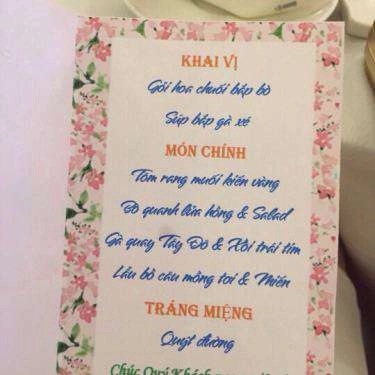 KHAI VỊ
Gỏi hoa chuối bắp bò
Súp bắp gà xé
MÓN CHÍNH
Tôm rang muối kiến vàng
Bò quanh lửa hồng & Salad
Gà quay Tây Đô & Xôi trái tim
Lẩu bò câu mồng tơi & Miến
TRÁNG MIỆNG
Quýt đường
Chúc Quý Khách